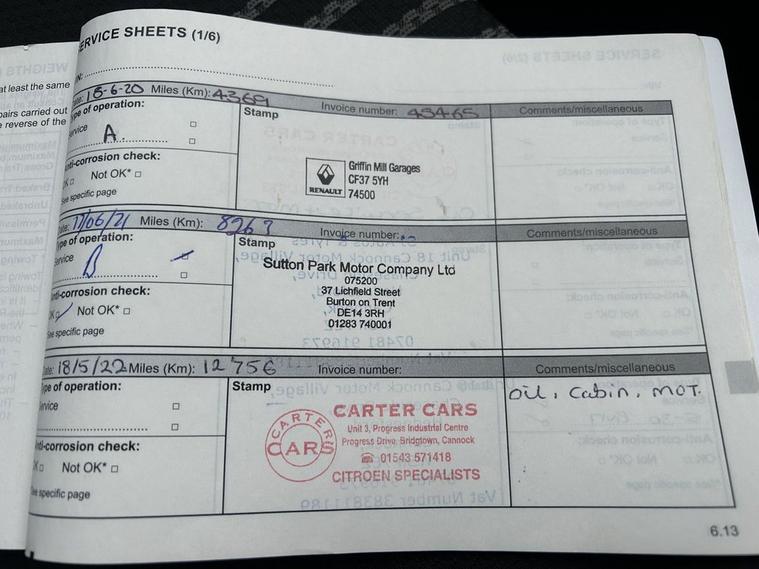 SERVICE SHEETS (1/6)
VIN:
Date: 18-6-20 Miles (Km): 4369 Invoice number: 43465 Comments/miscellaneous
Type of operation:
Stamp
Service A.
Anti-corrosion check:
OK Not OK*
*See specific page
RENAULT
Griffin Mill Garages
CF37 5YH
74500
Date: 17/06/21 Miles (Km): 8263 Invoice number: Comments/miscellaneous
Type of operation:
Stamp
Service B
Anti-corrosion check:
OK Not OK*
*See specific page
Sutton Park Motor Company Ltd
075200
37 Lichfield Street
Burton on Trent
DE14 3RH
01283 740001
Date: 18/5/22 Miles (Km): 12756 Invoice number: Comments/miscellaneous
Type of operation:
Stamp
Service
Anti-corrosion check:
OK Not OK*
*See specific page
CARTER
CARS
CARTER CARS
Unit 3, Progress Industrial Centre
Progress Drive, Bridgtown, Cannock
☎ 01543 571418
CITROEN SPECIALISTS
oil, Cabin, MOT.
6.13
at least the same
pairs carried out
reverse of the